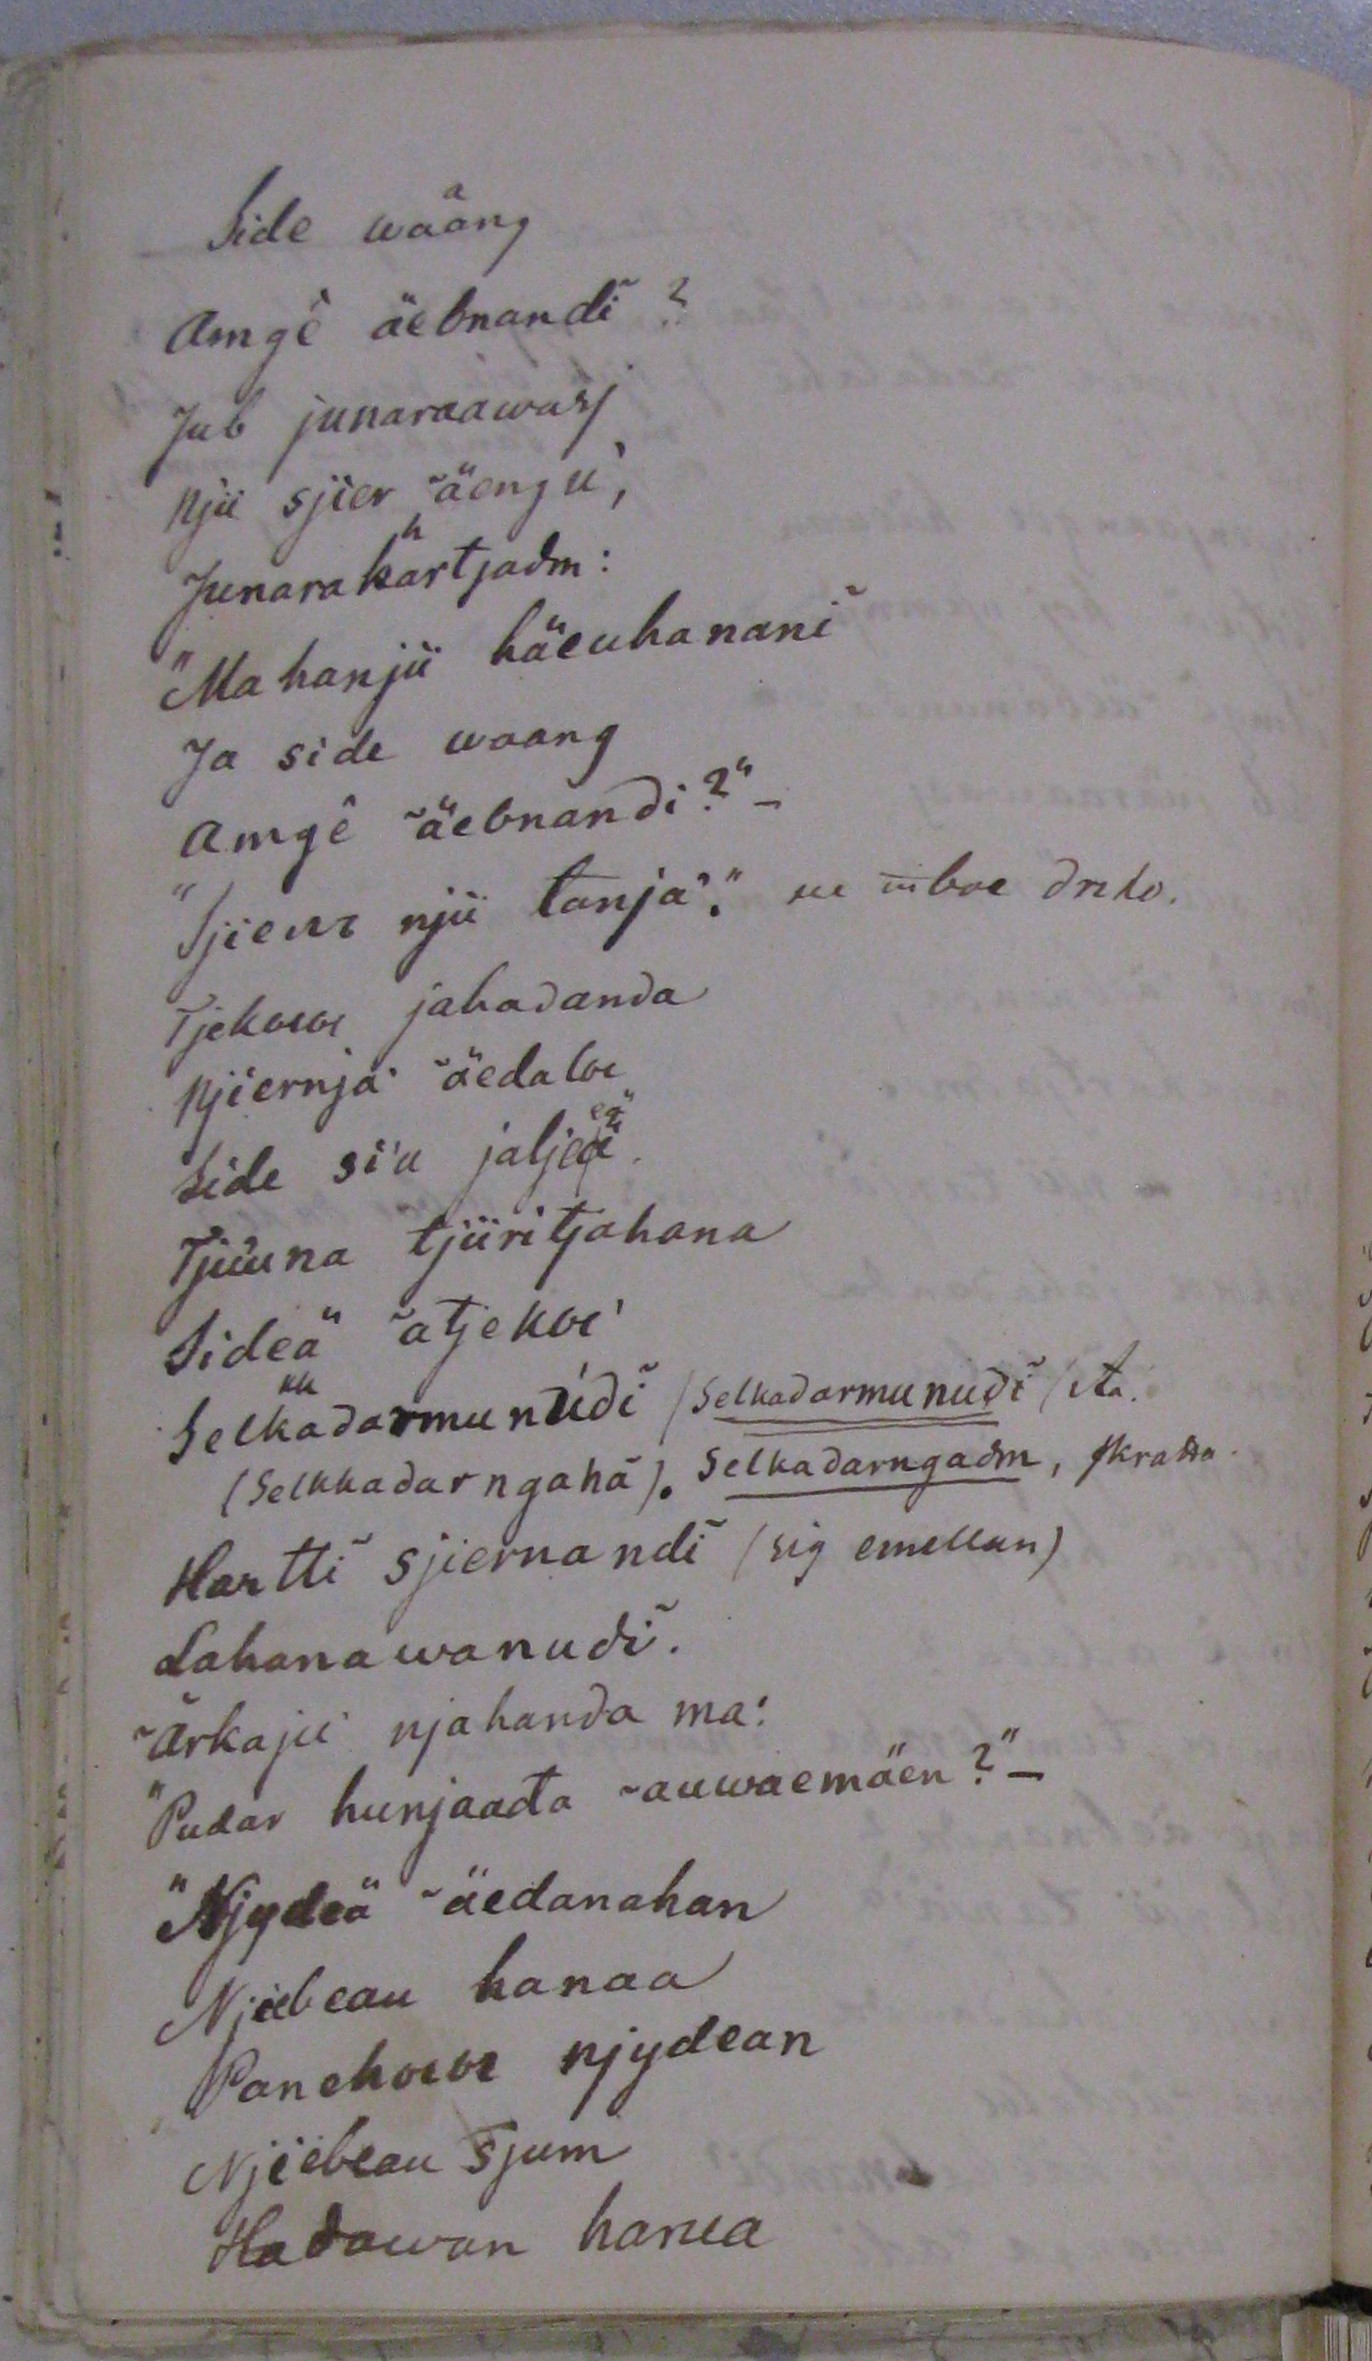 Side wåang
Amgê äebnandĩ ?
Jub junaraawasj
Njü sjier ˜äengu',
Junarahartjadm:
"Mahanjü häeuhananĩ
Ja side waang
Amgê ˜äebnandi?" –
"Sjieuw njü tanja'."
Tjekowe jabadanda
Njiernja' ˜äedaloe
Side si'u jaljeä
Tjuuna tjüritjahana
Sideä" ˜atjekoe'
Selkadarmunudĩ (Selkadarmunudĩ
(Selkkadarngahã). Selkadarngadm, skratta
Harttĩ sjiernandĩ (sig emellan)
Lahanawanudĩ.
˜Arkajü njahanda ma:
"Pudar hunjaada ˜auwaemäen?" –
"Njydeä ˜äedanahan
Njiebeau hanaa
Panehowe njydean
Njiebeau Tjum
Hadawan hanea